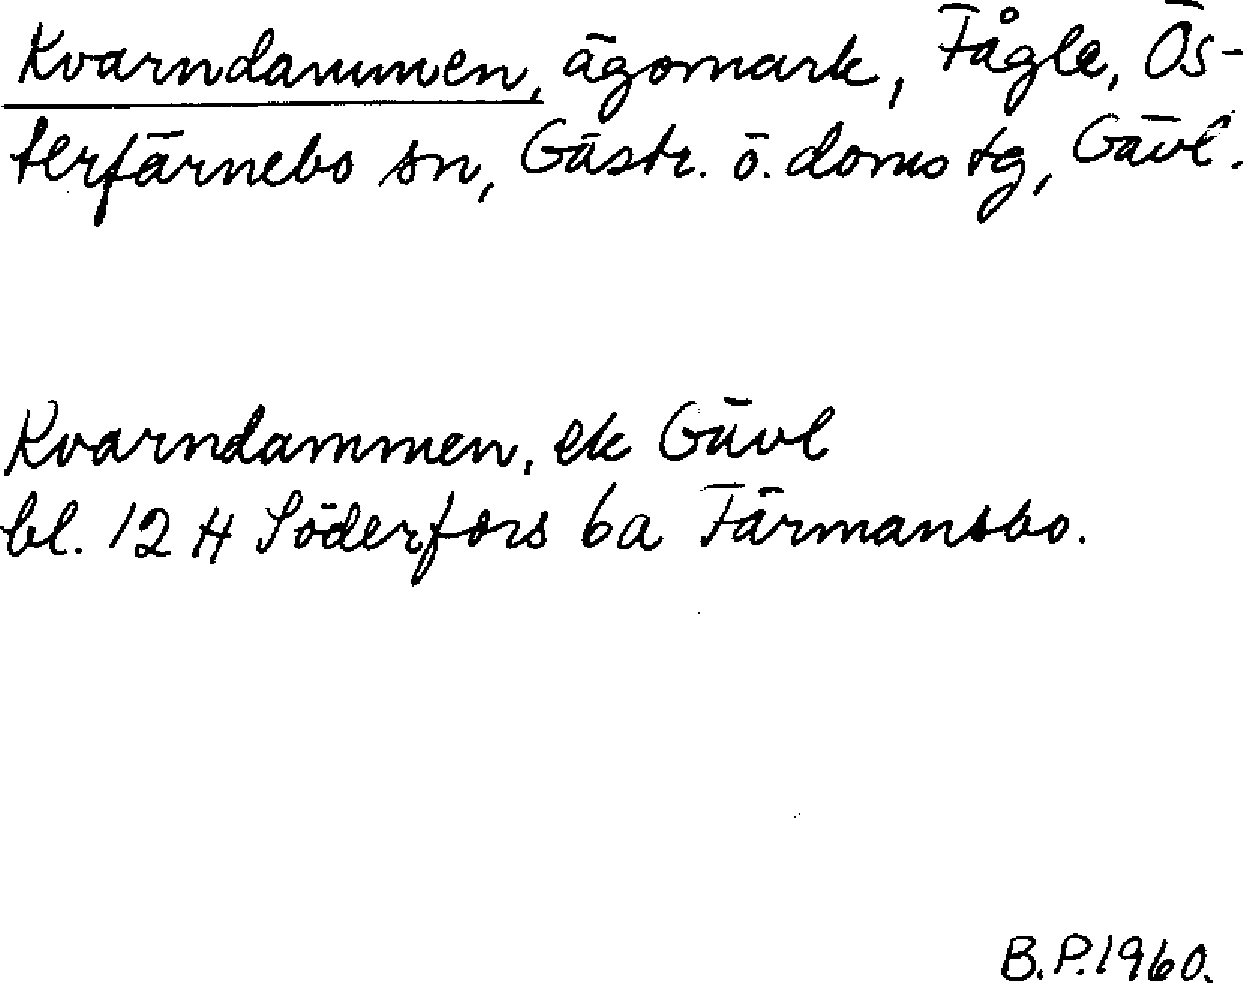 Kvarndammen, ägomark, Fågle, Ös-
terfärnebo sn, Gästr. ö. doms tg, Gävl.
Kvarndammen, ek Gävl
bl. 12 H Söderfors 6a Färmansbo.
B.P. 1960.